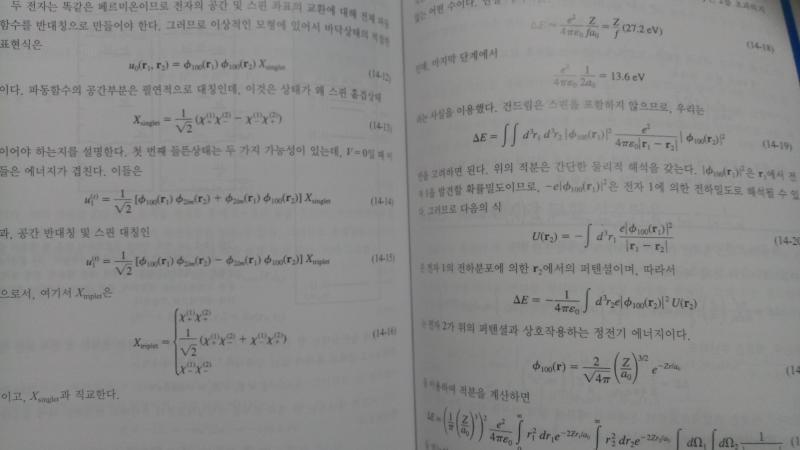 두 전자는 똑같은 페르미온이므로 전자의 공간 및 스핀 좌표의 교환에 대해 전체 파동
함수를 반대칭으로 만들어야 한다. 그러므로 이상적인 모형에 있어서 바닥상태의 적절한
표현식은
u₀(r₁, r₂) = ϕ₁₀₀(r₁) ϕ₁₀₀(r₂) X_singlet (14-12)
이다. 파동함수의 공간부분은 필연적으로 대칭인데, 이것은 상태가 왜 스핀 홑겹상태
X_singlet = 1/√2 (χ₊⁽¹⁾χ₋⁽²⁾ − χ₋⁽¹⁾χ₊⁽²⁾) (14-13)
이어야 하는지를 설명한다. 첫 번째 들뜬상태는 두 가지 가능성이 있는데, V = 0일 때
들은 에너지가 겹친다. 이들은
u₁⁽ˢ⁾ = 1/√2 [ϕ₁₀₀(r₁) ϕ₂ₗₘ(r₂) + ϕ₂ₗₘ(r₁) ϕ₁₀₀(r₂)] X_singlet (14-14)
과, 공간 반대칭 및 스핀 대칭인
u₁⁽ᵗ⁾ = 1/√2 [ϕ₁₀₀(r₁) ϕ₂ₗₘ(r₂) − ϕ₂ₗₘ(r₁) ϕ₁₀₀(r₂)] X_triplet (14-15)
으로서, 여기서 X_triplet은
X_triplet = { χ₊⁽¹⁾χ₊⁽²⁾
1/√2 (χ₊⁽¹⁾χ₋⁽²⁾ + χ₋⁽¹⁾χ₊⁽²⁾) (14-16)
χ₋⁽¹⁾χ₋⁽²⁾
이고, X_singlet과 직교한다.
않는 어떤 수이다.
ΔE ≈ e²/4πε₀ Z/fa₀ = Z/f (27.2 eV) (14-18)
마지막 단계에서
e²/4πε₀ 1/2a₀ = 13.6 eV
하는 사실을 이용했다. 건드림은 스핀을 포함하지 않으므로, 우리는
ΔE = ∫∫ d³r₁ d³r₂ |ϕ₁₀₀(r₁)|² e²/4πε₀|r₁ − r₂| |ϕ₁₀₀(r₂)|² (14-19)
만을 고려하면 된다. 위의 적분은 간단한 물리적 해석을 갖는다. |ϕ₁₀₀(r₁)|²은 r₁에서 전
자 1을 발견할 확률밀도이므로, −e|ϕ₁₀₀(r₁)|²은 전자 1에 의한 전하밀도로 해석될 수 있
다. 그러므로 다음의 식
U(r₂) = − ∫ d³r₁ e|ϕ₁₀₀(r₁)|²/|r₁ − r₂| (14-20
은 전자 1의 전하분포에 의한 r₂에서의 퍼텐셜이며, 따라서
ΔE = − 1/4πε₀ ∫ d³r₂e|ϕ₁₀₀(r₂)|² U(r₂)
는 전자 2가 위의 퍼텐셜과 상호작용하는 정전기 에너지이다.
ϕ₁₀₀(r) = 2/√4π (Z/a₀)^3/2 e^−Zr/a₀ (14-
을 이용하여 적분을 계산하면
ΔE = (1/π (Z/a₀)³)² e²/4πε₀ ∫₀^∞ r₁² dr₁e^−2Zr₁/a₀ ∫₀^∞ r₂² dr₂e^−2Zr₂/a₀ ∫ dΩ₁ ∫ dΩ₂